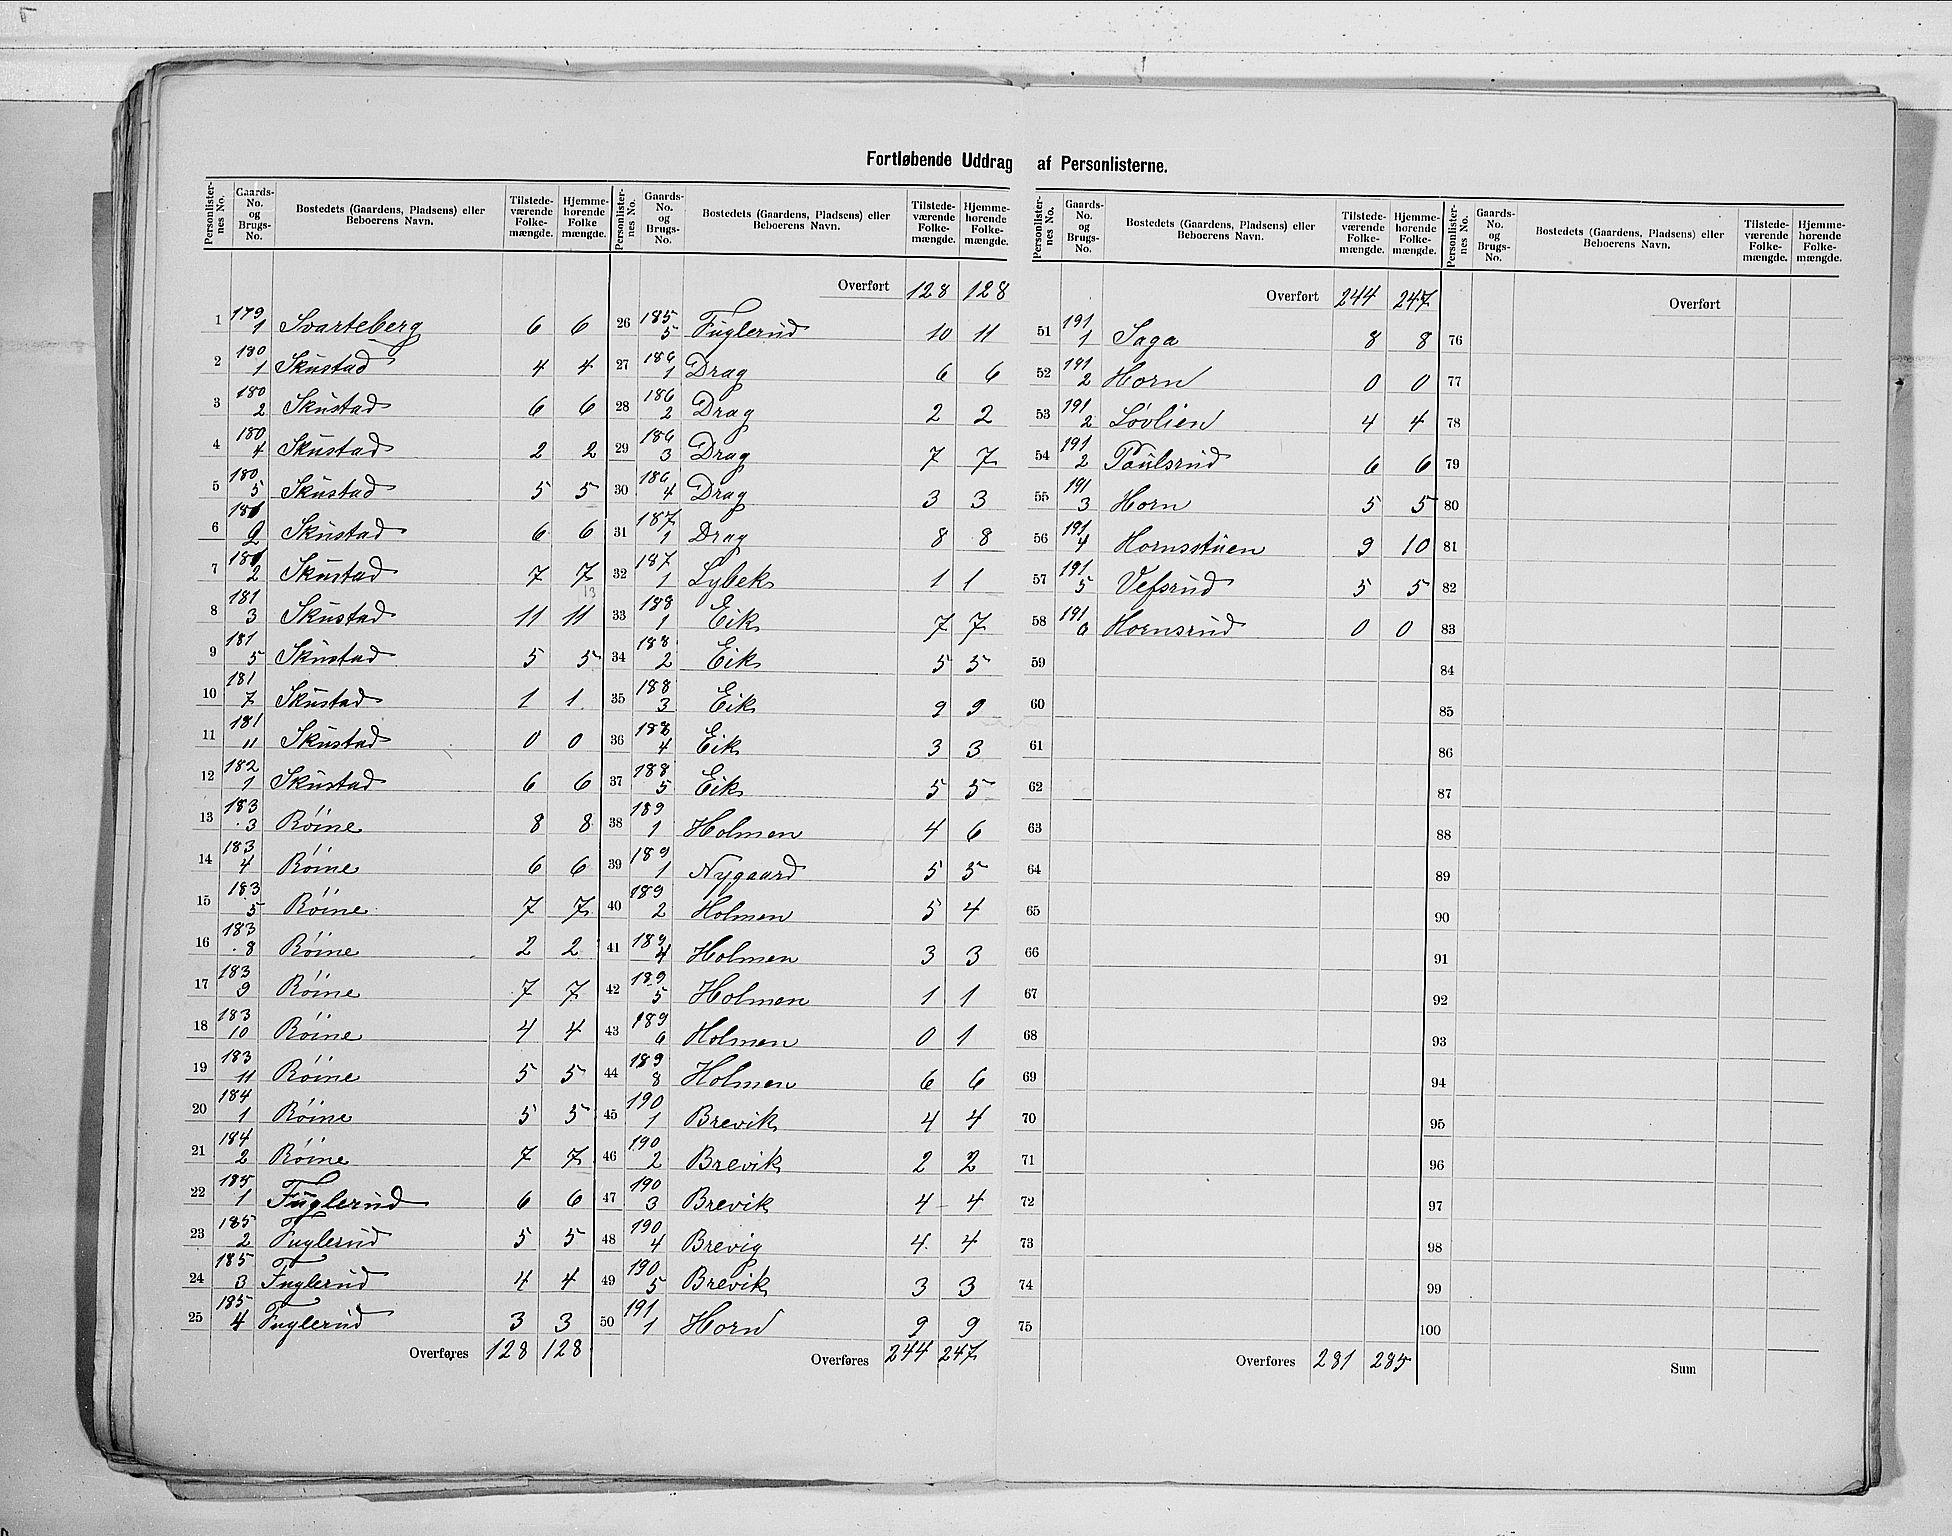 Fortløbende Uddrag af Personlisterne.
Personlister-nes No. | Gaards-No. og Brugs-No. | Bostedets (Gaardens, Pladsens) eller Beboerens Navn. | Tilstede-værende Folke-mængde. | Hjemme-hørende Folke mængde.
1 179/1 Svarteberg 6 6
2 180/1 Skustad 4 4
3 180/2 Skustad 6 6
4 180/4 Skustad 2 2
5 180/5 Skustad 5 5
6 181/2 Skustad 6 6
7 181/2 Skustad 7 7
13
8 181/3 Skustad 11 11
9 181/5 Skustad 5 5
10 181/7 Skustad 1 1
11 181/11 Skustad 0 0
12 182/1 Skustad 6 6
13 183/3 Röine 8 8
14 183/4 Röine 6 6
15 183/5 Röine 7 7
16 183/8 Röine 2 2
17 183/9 Röine 7 7
18 183/10 Röine 4 4
19 183/11 Röine 5 5
20 184/1 Röine 5 5
21 184/2 Röine 7 7
22 185/1 Fuglerud 6 6
23 185/2 Fuglerud 5 5
24 185/3 Fuglerud 4 4
25 185/4 Fuglerud 3 3
Overføres 128 128
Personlister-nes No. | Gaards-No. og Brugs-No. | Bostedets (Gaardens, Pladsens) eller Beboerens Navn. | Tilstede-værende Folke-mængde. | Hjemme-hørende Folke-mængde.
Overført 128 128
26 185/5 Fuglerud 10 11
27 186/1 Drag 6 6
28 186/2 Drag 2 2
29 186/3 Drag 7 7
30 186/4 Drag 3 3
31 187/1 Drag 8 8
32 187/1 Lybek 1 1
33 188/1 Eik 7 7
34 188/2 Eik 5 5
35 188/3 Eik 9 9
36 188/4 Eik 3 3
37 188/5 Eik 5 5
38 189/1 Holmen 4 6
39 189/1 Nygaard 5 5
40 189/2 Holmen 5 4
41 189/4 Holmen 3 3
42 189/5 Holmen 1 1
43 189/6 Holmen 0 1
44 189/8 Holmen 6 6
45 190/1 Brevik 4 4
46 190/2 Brevik 2 2
47 190/3 Brevik 4 4
48 190/4 Brevig 4 4
49 190/5 Brevik 3 3
50 191/1 Horn 9 9
Overføres 244 247
Personlister-nes No. | Gaards-No. og Brugs-No. | Bostedets (Gaardens, Pladsens) eller Beboerens Navn. | Tilstede-værende Folke-mængde. | Hjemme-hørende Folke-mængde.
Overført 244 247
51 191/1 Saga 8 8
52 191/2 Horn 0 0
53 191/2 Lövlien 4 4
54 191/2 Paulsrud 6 6
55 191/3 Horn 5 5
56 191/4 Hornsstuen 9 10
57 191/5 Vefsrud 5 5
58 191/6 Hornsrud 0 0
59
60
61
62
63
64
65
66
67
68
69
70
71
72
73
74
75
Overføres 281 285
Personlister-nes No. | Gaards-No. og Brugs-No. | Bostedets (Gaardens, Pladsens) eller Beboerens Navn. | Tilstede-værende Folke-mængde. | Hjemme-hørende Folke-mængde.
Overført
76
77
78
79
80
81
82
83
84
85
86
87
88
89
90
91
92
93
94
95
96
97
98
99
100
Sum